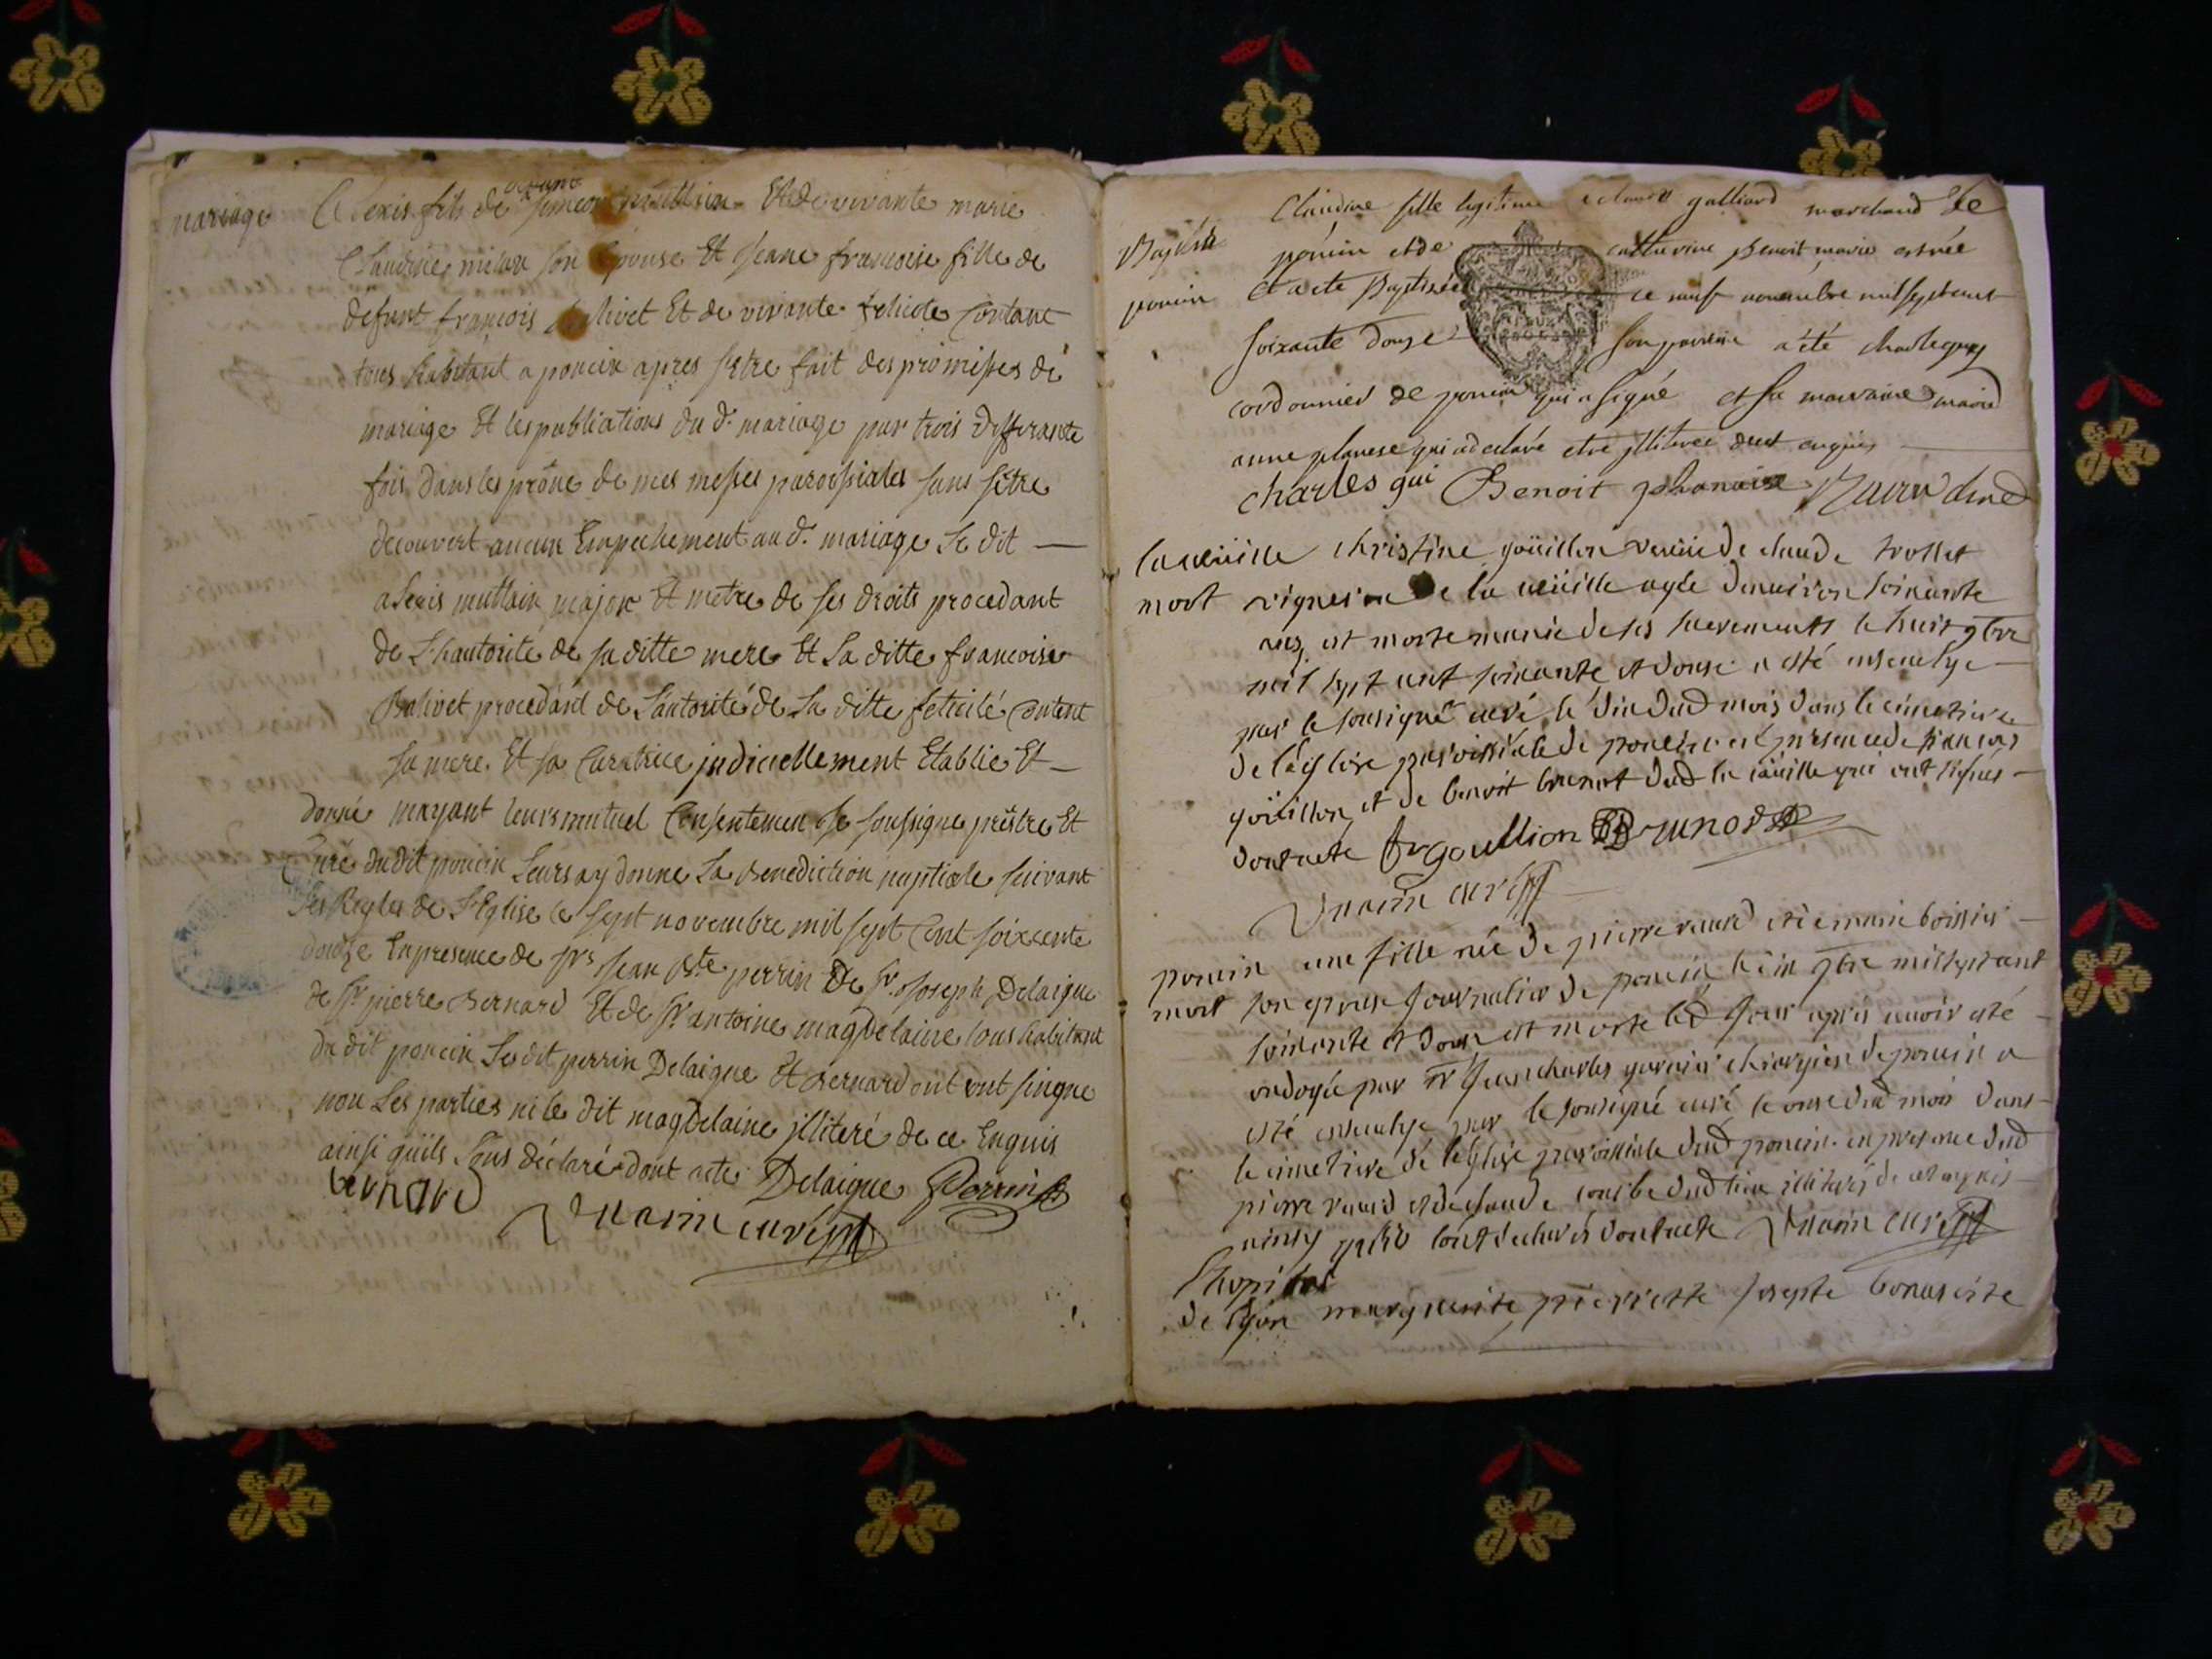 mariage
Alexis fils de defunt simeon mutlain Et de vivante marie
Claudine milan son Epouse Et Jeane francoise fille de
defunt francois balivet Et de vivante felicite Contant
tous habitant a poncin apres setre fait des promisses de
mariage Et les publications du d. mariage par trois differante
fois dans les prône de mes messes paroissiales sans sêtre
decouvert aucun Empechement au d. mariage Le dit —
alexis mutlain major Et metre de ses droits procedant
de L'hautorité de sa ditte mere Et La ditte francoise
Balivet procedant de L'autorité de La ditte felicité Contant
sa mere. Et sa Curatrice judiciellement Etablie Et —
donné mayant leurs mutuel Consentemen Je soussigne prêtre Et
Curé du dit poncin Leurs ay donne La Benediction nuptiale suivant
Les Regles de L'Eglise le sept novembre mil sept Cent soixcente
douze En presence de srs Jean Bte perrin De sr. Joseph Delaigue
de sr pierre Bernard Et de sr antoine magdelaine tous habitant
du dit poncin Les dit perrin Delaigue Et Bernard ont singne
non Les parties ni le dit magdelaine jlliteré de ce Enquis
ainsi quils L'ons déclaré dont acte Delaigue Perrin
bernard
marin curé
Baptistè
poncin
Claudine fille legitime galliard marchand de
poncin et de catherine Benoit marie est née
Et a ete Baptisée ce neuf novembre mil sept cent
soixante douze son parrein a été charle guy
cordonnier de poncin qui a signé et sa marraine marie
anne planese qui a declaré etre jlliterée dud enquis
charles gui Benoit
la cuëille
mort
christine goüillon veuve de claude trollet
vigneron de la cuëille agée denviron soixante
ans est morte munie de ses sacrements le huit 9bre
mil sept cent soixante et douse a esté ensevelye —
par le sousigné curé le dix dud mois dans le cimetiere
de léglise paroissiale de poncin en presence de francois
goüillon et de benoit brunot dud la cuëille qui ont signés —
dont acte fr goullion BBrunod
marin curé
poncin
mort
une fille née de pierre ravid et de marie boissier —
son epouse Journalier de poncin le dix 9bre mil sept cent
soixante et douse est morte led Jour apres avoir esté —
ondoyée par Sr Jean charles garnier chirurgien de poncin a
esté ensevelye par le sousigné curé le onze dud mois dans —
le cimetiere de léglise paroissiale dud poncin en presence dud
pierre ravid et de claude combe dud lieu illiterés de ce enquis —
ainsy quils lont declarés dont acte marin curé
Lhopital
de lyon
marguerite pierrette Josepte